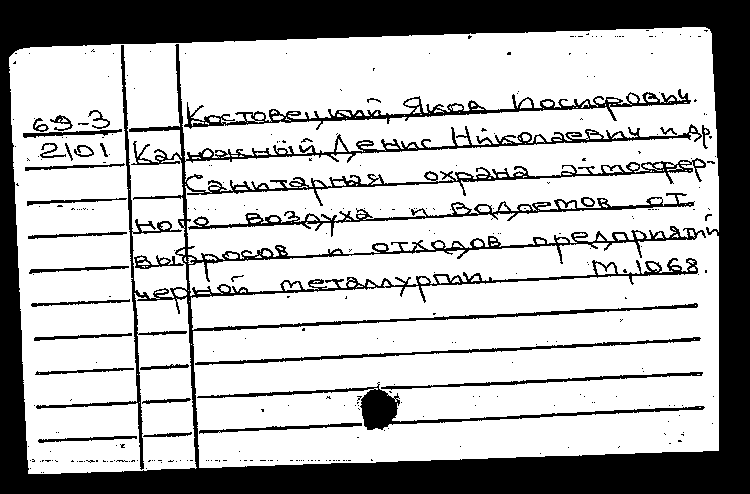 Костовецкий, Яков Иосифович.
69-3
2101 Калюжный, Денис Николаевич и др.
Санитарная охрана атмосфер-
ного воздуха и водоемов от
выбросов и отходов предприятий
черной металлургии. М., 1968.